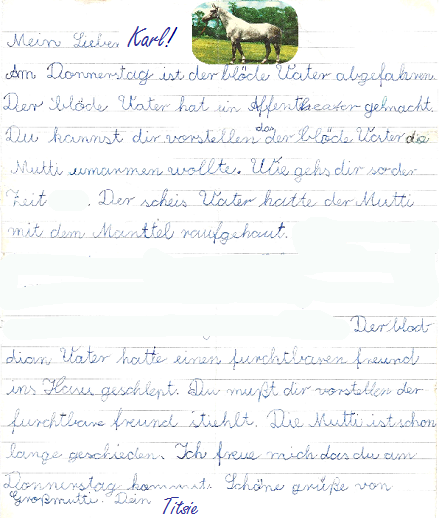 Mein Lieber Karl!
Am Donnerstag ist der blöde Vater abgefahren.
Der blöde Vater hat ein Affentheater gemacht.
Du kannst dir vorstellen das der blöde Vater die
Mutti umarmen wollte. Wie gehs dir so der
Zeit . Der scheis Vater hatte der Mutti
mit dem Manttel raufgehaut.
Der blöd-
dian Vater hatte einen furchtbaren freund
ins Haus geschlept. Du mußt dir vorstellen der
furchtbare freund stiehlt. Die Mutti ist schon
lange geschieden. Ich freue mich das du am
Donnerstag kommst. Schöne grüße von
Großmutti. Dein Titsie